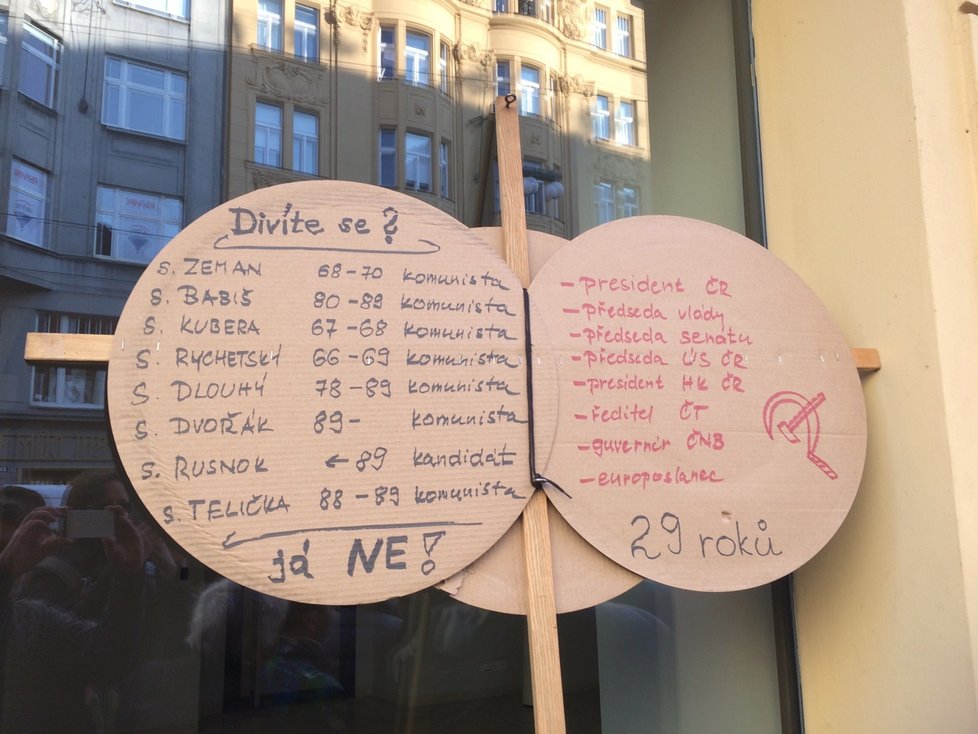 Divíte se?
s. ZEMAN 68-70 komunista
s. BABIŠ 80-89 komunista
s. KUBERA 67-68 komunista
s. RYCHETSKÝ 66-69 komunista
s. DLOUHÝ 78-89 komunista
s. DVOŘÁK 89- komunista
s. RUSNOK ←89 kandidát
s. TELIČKA 88-89 komunista
já NE!
-president ČR
-předseda vlády
-předseda senátu
-předseda ÚS ČR
-president HK ČR
-ředitel ČT
-guvernér ČNB
-europoslanec
29 roků